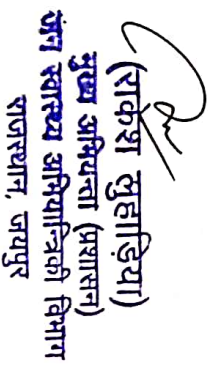 (राकेश लुहाड़िया)
मुख्य अभियन्ता (प्रशासन)
जन स्वास्थ्य अभियान्त्रिकी विभाग
राजस्थान, जयपुर